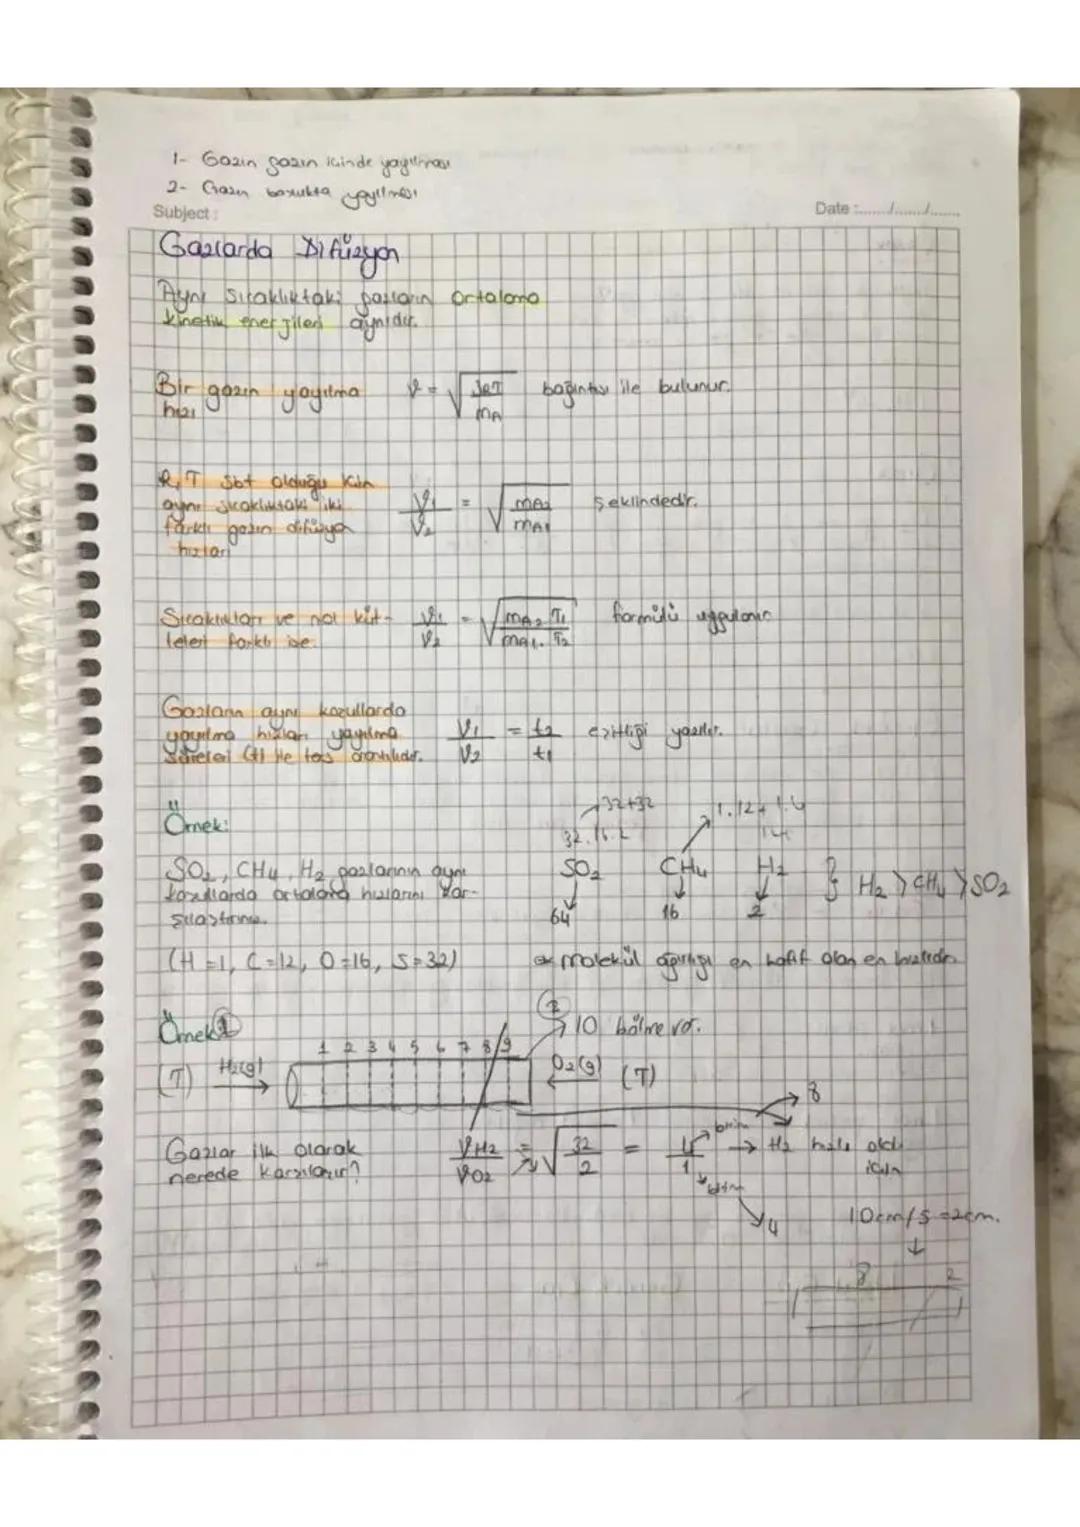 1- Gazın gazın içinde yayılması
2- Gazın boşlukta yayılması
Subject:
Date :......./......./.......
Gazlarda Difüzyon
Aynı sıcaklıktaki gazların ortalama
kinetik enerjileri aynıdır.
Bir gazın yayılma hızı
v = √(3RT / mA) bağıntısı ile bulunur.
R,T sbt olduğu için
aynı sıcaklıktaki iki
farklı gazın difüzyon
hızları
v1/v2 = √(mA2 / mA1) şeklindedir.
Sıcaklıkları ve mol küt-
leleri farklı ise.
v1/v2 = √(mA2 . T1 / mA1 . T2) formülü uygulanır
Gazların aynı koşullarda
yayılma hızları yayılma
süreleri (t) ile ters orantılıdır.
V1/V2 = t2/t1 eşitliği yazılır.
Örnek:
32+32
32.16.2
1.12+1.4
SO2 CH4 H2 } H2 > CH4 > SO2
64 16 2
SO2, CH4, H2 gazlarının aynı
koşullarda ortalama hızlarını kar-
şılaştırınız.
(H=1, C=12, O=16, S=32)
molekül ağırlığı en hafif olan en hızlıdır
Örnek 1
10 bölme var.
1 2 3 4 5 6 7 8 9
(T) H2(g)
O2(g) (T)
8
Gazlar ilk olarak
nerede karşılaşır?
VH2/VO2 = √(32/2) = 4/1 → H2 hızlı olduğu için
birim
birim
4
10cm/5=2cm.
8 2